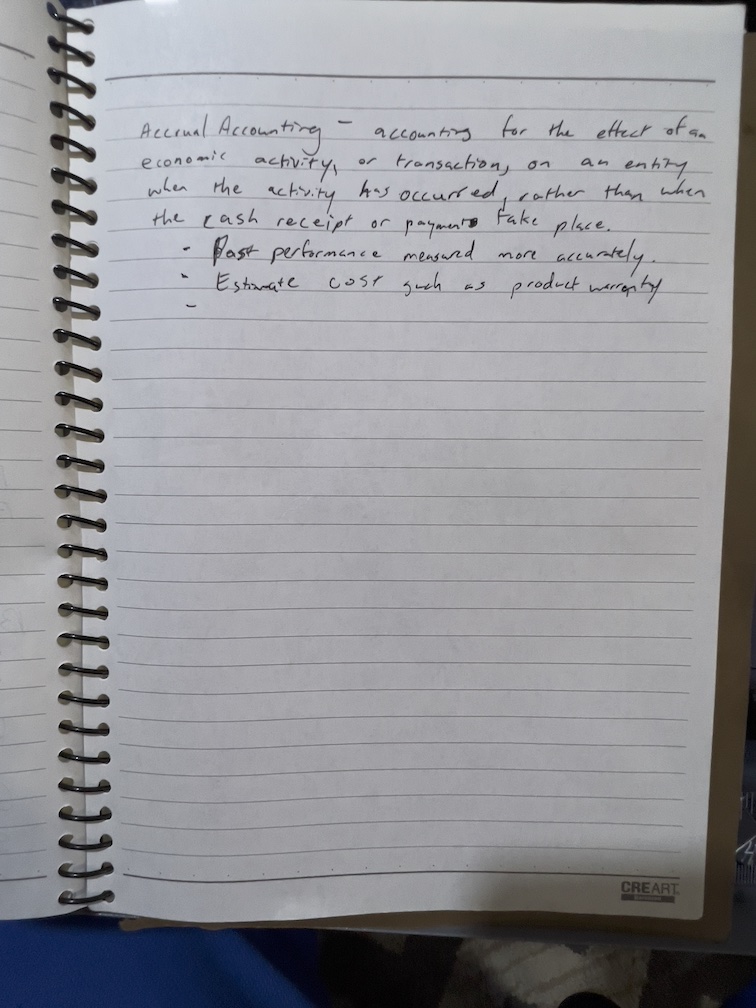 Accrual Accounting - accounting for the effect of an
economic activity, or transaction, on an entity
when the activity has occurred, rather than when
the cash receipt or payments take place.
- Past performance measured more accurately.
- Estimate cost such as product warranty
-
CREART